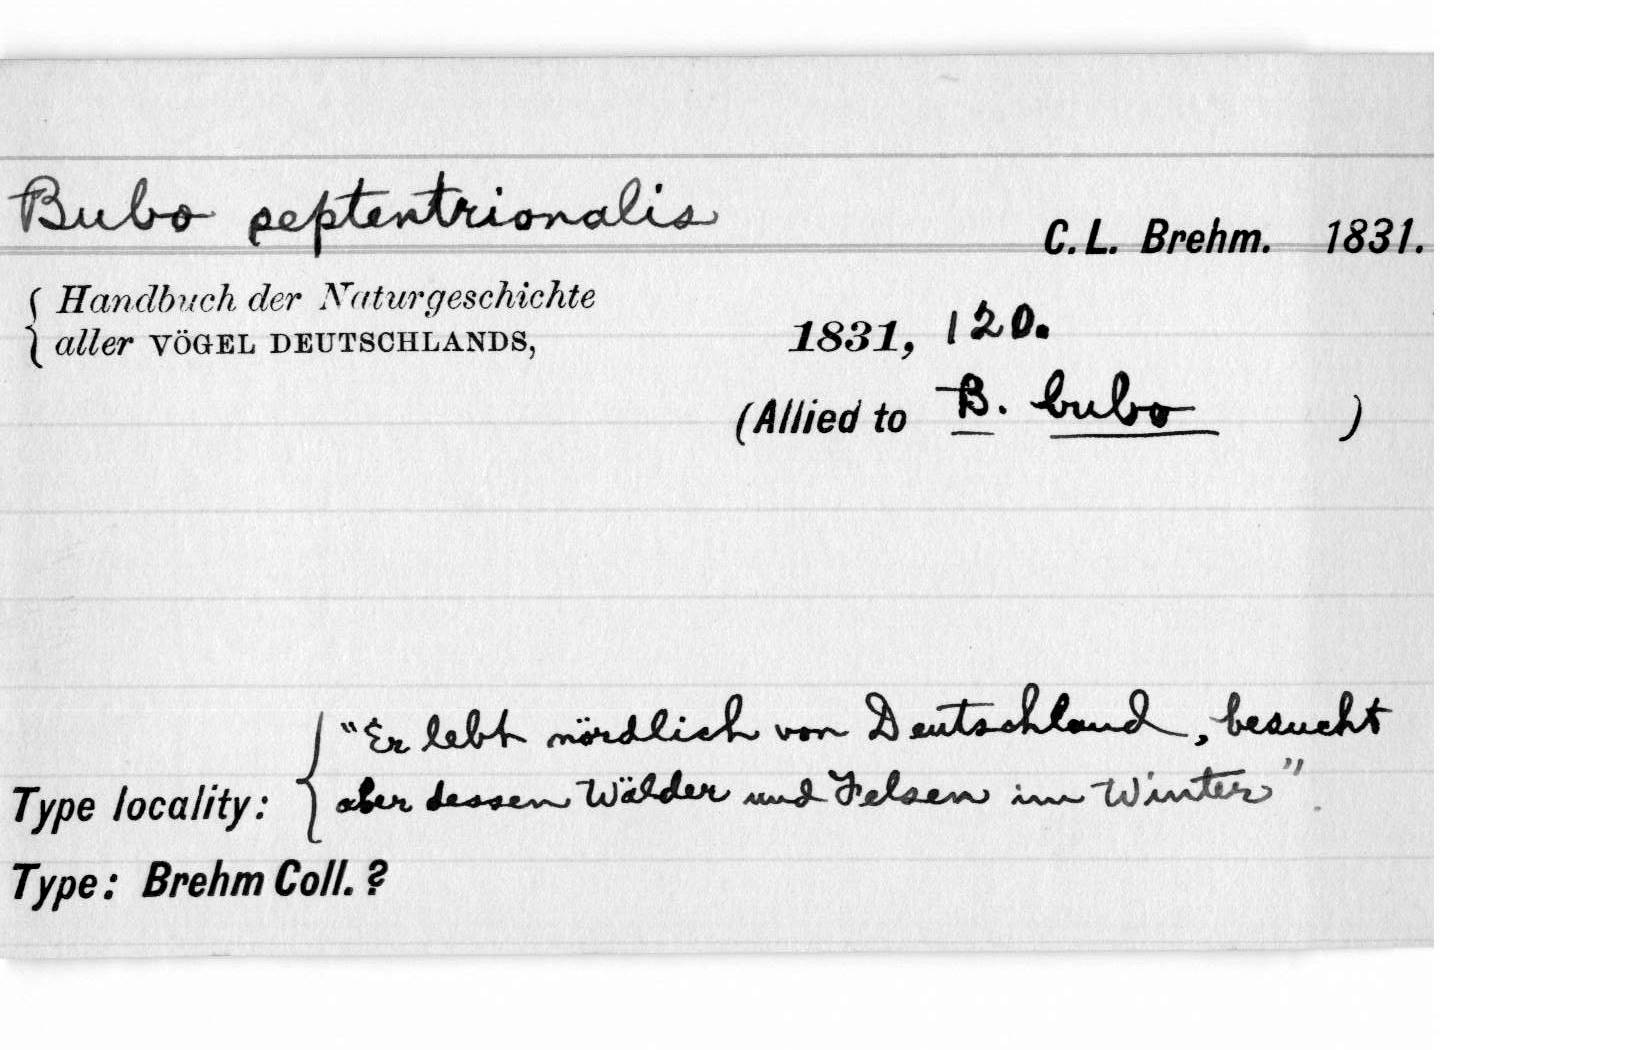 Bubo septentrionalis
C. L. Brehm. 1831.
Handbuch der Naturgeschichte
aller VÖGEL DEUTSCHLANDS, 1831, 120.
(Allied to B. bubo )
"Er lebt nördlich von Deutschland, besucht
Type locality: aber dessen Wälder und Felsen im Winter".
Type: Brehm Coll. ?